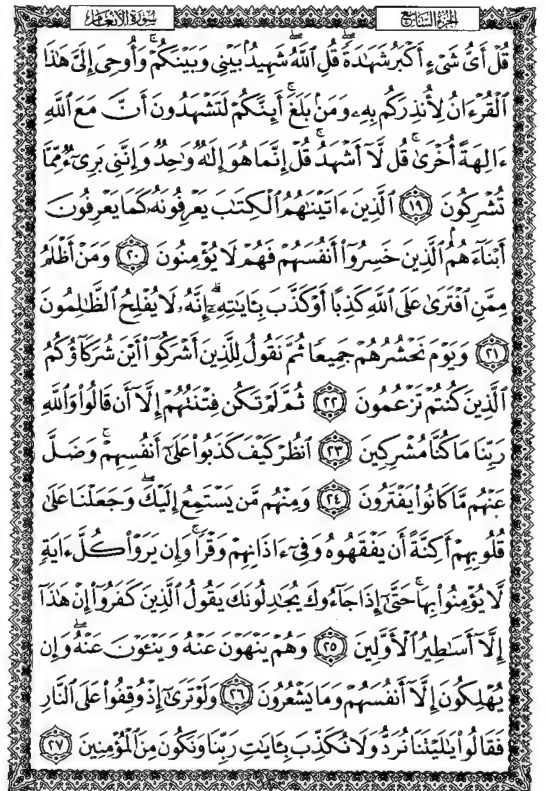 الجزء السابع
سورة الأنعام
قُلۡ أَيُّ شَيۡءٍ أَكۡبَرُ شَهَٰدَةٗۖ قُلِ ٱللَّهُۖ شَهِيدُۢ بَيۡنِي وَبَيۡنَكُمۡۚ وَأُوحِيَ إِلَيَّ هَٰذَا
ٱلۡقُرۡءَانُ لِأُنذِرَكُم بِهِۦ وَمَنۢ بَلَغَۚ أَئِنَّكُمۡ لَتَشۡهَدُونَ أَنَّ مَعَ ٱللَّهِ
ءَالِهَةً أُخۡرَىٰۚ قُل لَّآ أَشۡهَدُۚ قُلۡ إِنَّمَا هُوَ إِلَٰهٞ وَٰحِدٞ وَإِنَّنِي بَرِيٓءٞ مِّمَّا
تُشۡرِكُونَ ١٩ ٱلَّذِينَ ءَاتَيۡنَٰهُمُ ٱلۡكِتَٰبَ يَعۡرِفُونَهُۥ كَمَا يَعۡرِفُونَ
أَبۡنَآءَهُمُۘ ٱلَّذِينَ خَسِرُوٓاْ أَنفُسَهُمۡ فَهُمۡ لَا يُؤۡمِنُونَ ٢٠ وَمَنۡ أَظۡلَمُ
مِمَّنِ ٱفۡتَرَىٰ عَلَى ٱللَّهِ كَذِبًا أَوۡ كَذَّبَ بِـَٔايَٰتِهِۦٓۗ إِنَّهُۥ لَا يُفۡلِحُ ٱلظَّٰلِمُونَ
٢١ وَيَوۡمَ نَحۡشُرُهُمۡ جَمِيعٗا ثُمَّ نَقُولُ لِلَّذِينَ أَشۡرَكُوٓاْ أَيۡنَ شُرَكَآؤُكُمُ
ٱلَّذِينَ كُنتُمۡ تَزۡعُمُونَ ٢٢ ثُمَّ لَمۡ تَكُن فِتۡنَتُهُمۡ إِلَّآ أَن قَالُواْ وَٱللَّهِ
رَبِّنَا مَا كُنَّا مُشۡرِكِينَ ٢٣ ٱنظُرۡ كَيۡفَ كَذَبُواْ عَلَىٰٓ أَنفُسِهِمۡۚ وَضَلَّ
عَنۡهُم مَّا كَانُواْ يَفۡتَرُونَ ٢٤ وَمِنۡهُم مَّن يَسۡتَمِعُ إِلَيۡكَۖ وَجَعَلۡنَا عَلَىٰ
قُلُوبِهِمۡ أَكِنَّةً أَن يَفۡقَهُوهُ وَفِيٓ ءَاذَانِهِمۡ وَقۡرٗاۚ وَإِن يَرَوۡاْ كُلَّ ءَايَةٖ
لَّا يُؤۡمِنُواْ بِهَاۖ حَتَّىٰٓ إِذَا جَآءُوكَ يُجَٰدِلُونَكَ يَقُولُ ٱلَّذِينَ كَفَرُوٓاْ إِنۡ هَٰذَآ
إِلَّآ أَسَٰطِيرُ ٱلۡأَوَّلِينَ ٢٥ وَهُمۡ يَنۡهَوۡنَ عَنۡهُ وَيَنۡـَٔوۡنَ عَنۡهُۖ وَإِن
يُهۡلِكُونَ إِلَّآ أَنفُسَهُمۡ وَمَا يَشۡعُرُونَ ٢٦ وَلَوۡ تَرَىٰٓ إِذۡ وُقِفُواْ عَلَى ٱلنَّارِ
فَقَالُواْ يَٰلَيۡتَنَا نُرَدُّ وَلَا نُكَذِّبَ بِـَٔايَٰتِ رَبِّنَا وَنَكُونَ مِنَ ٱلۡمُؤۡمِنِينَ ٢٧